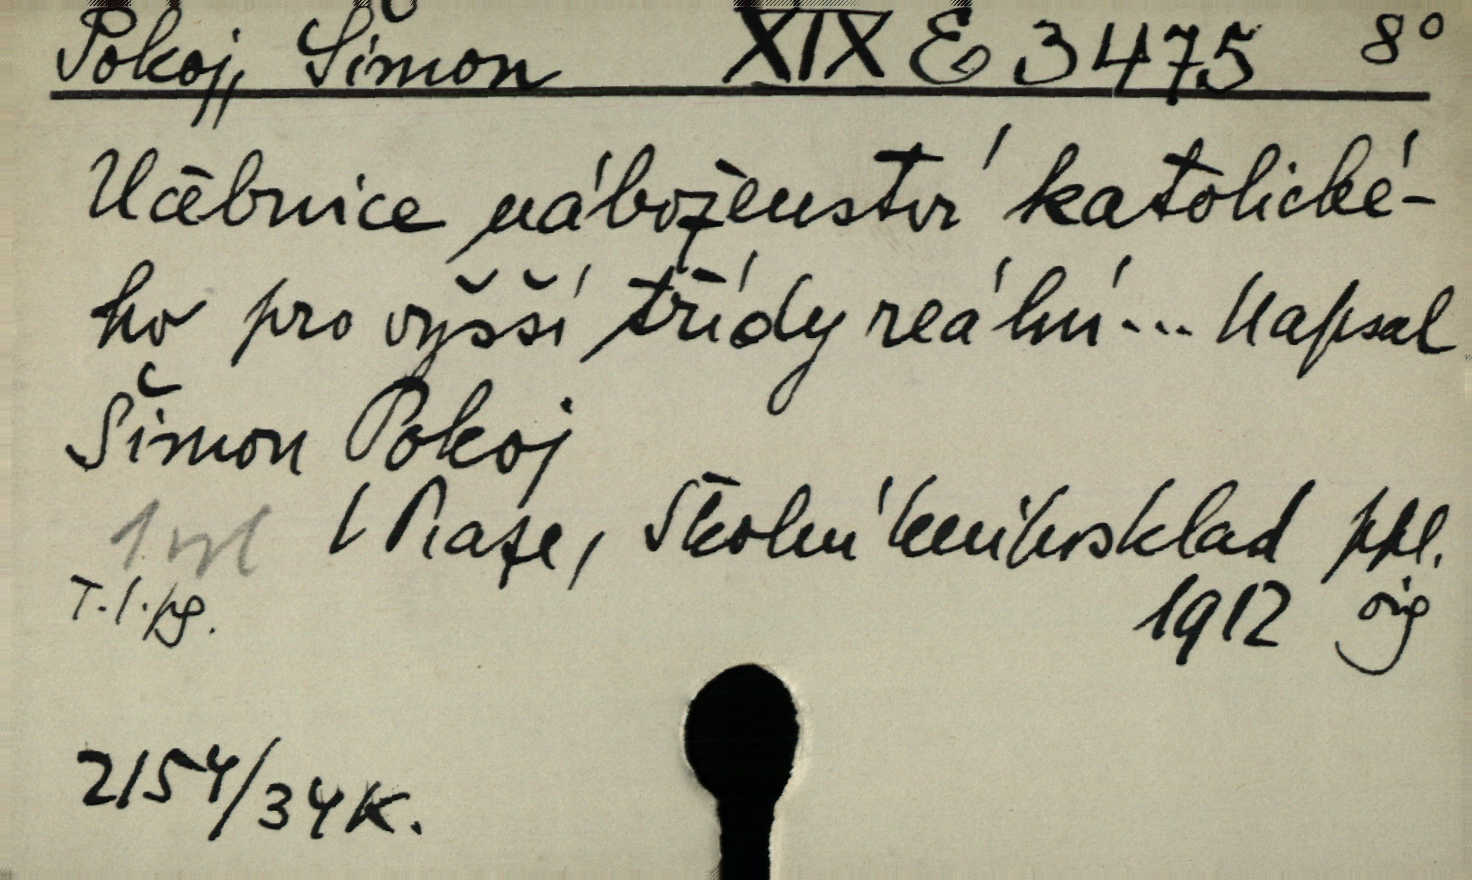 Pokoj, Šimon XIX E 3475 8°
Učebnice náboženství katolické-
ho pro vyšší třídy reální... Napsal
Šimon Pokoj
V Praze, Školní knihosklad ppl.
T.I.pg. 1912 orig
2154/34K.